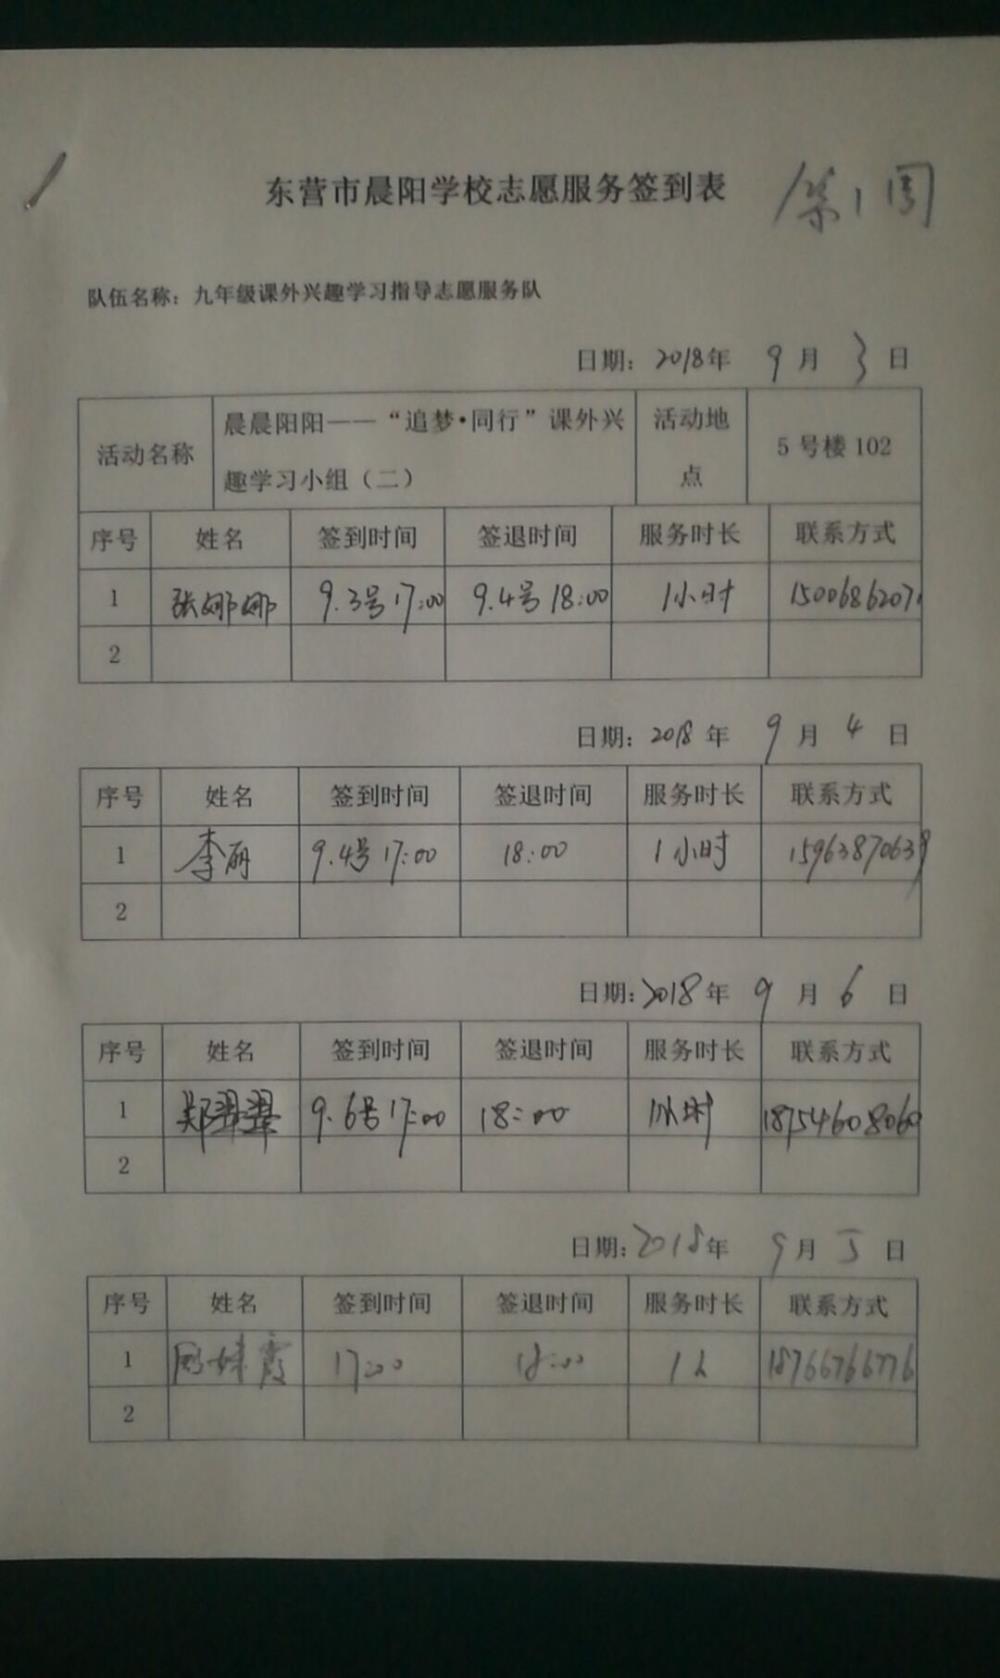 东营市晨阳学校志愿服务签到表 第1周
队伍名称：九年级课外兴趣学习指导志愿服务队
日期：2018年 9月 3日
活动名称 晨晨阳阳——“追梦·同行”课外兴趣学习小组（二） 活动地点 5号楼102
序号 姓名 签到时间 签退时间 服务时长 联系方式
1 张娜娜 9.3号17:00 9.4号18:00 1小时 15006862071
2
日期：2018年 9月 4日
序号 姓名 签到时间 签退时间 服务时长 联系方式
1 李丽 9.4号17:00 18:00 1小时 15963870639
2
日期：2018年 9月 6日
序号 姓名 签到时间 签退时间 服务时长 联系方式
1 郑翠翠 9.6号17:00 18:00 1小时 18754608060
2
日期：2018年 9月 5日
序号 姓名 签到时间 签退时间 服务时长 联系方式
1 17:00 18:00 18766766776
2